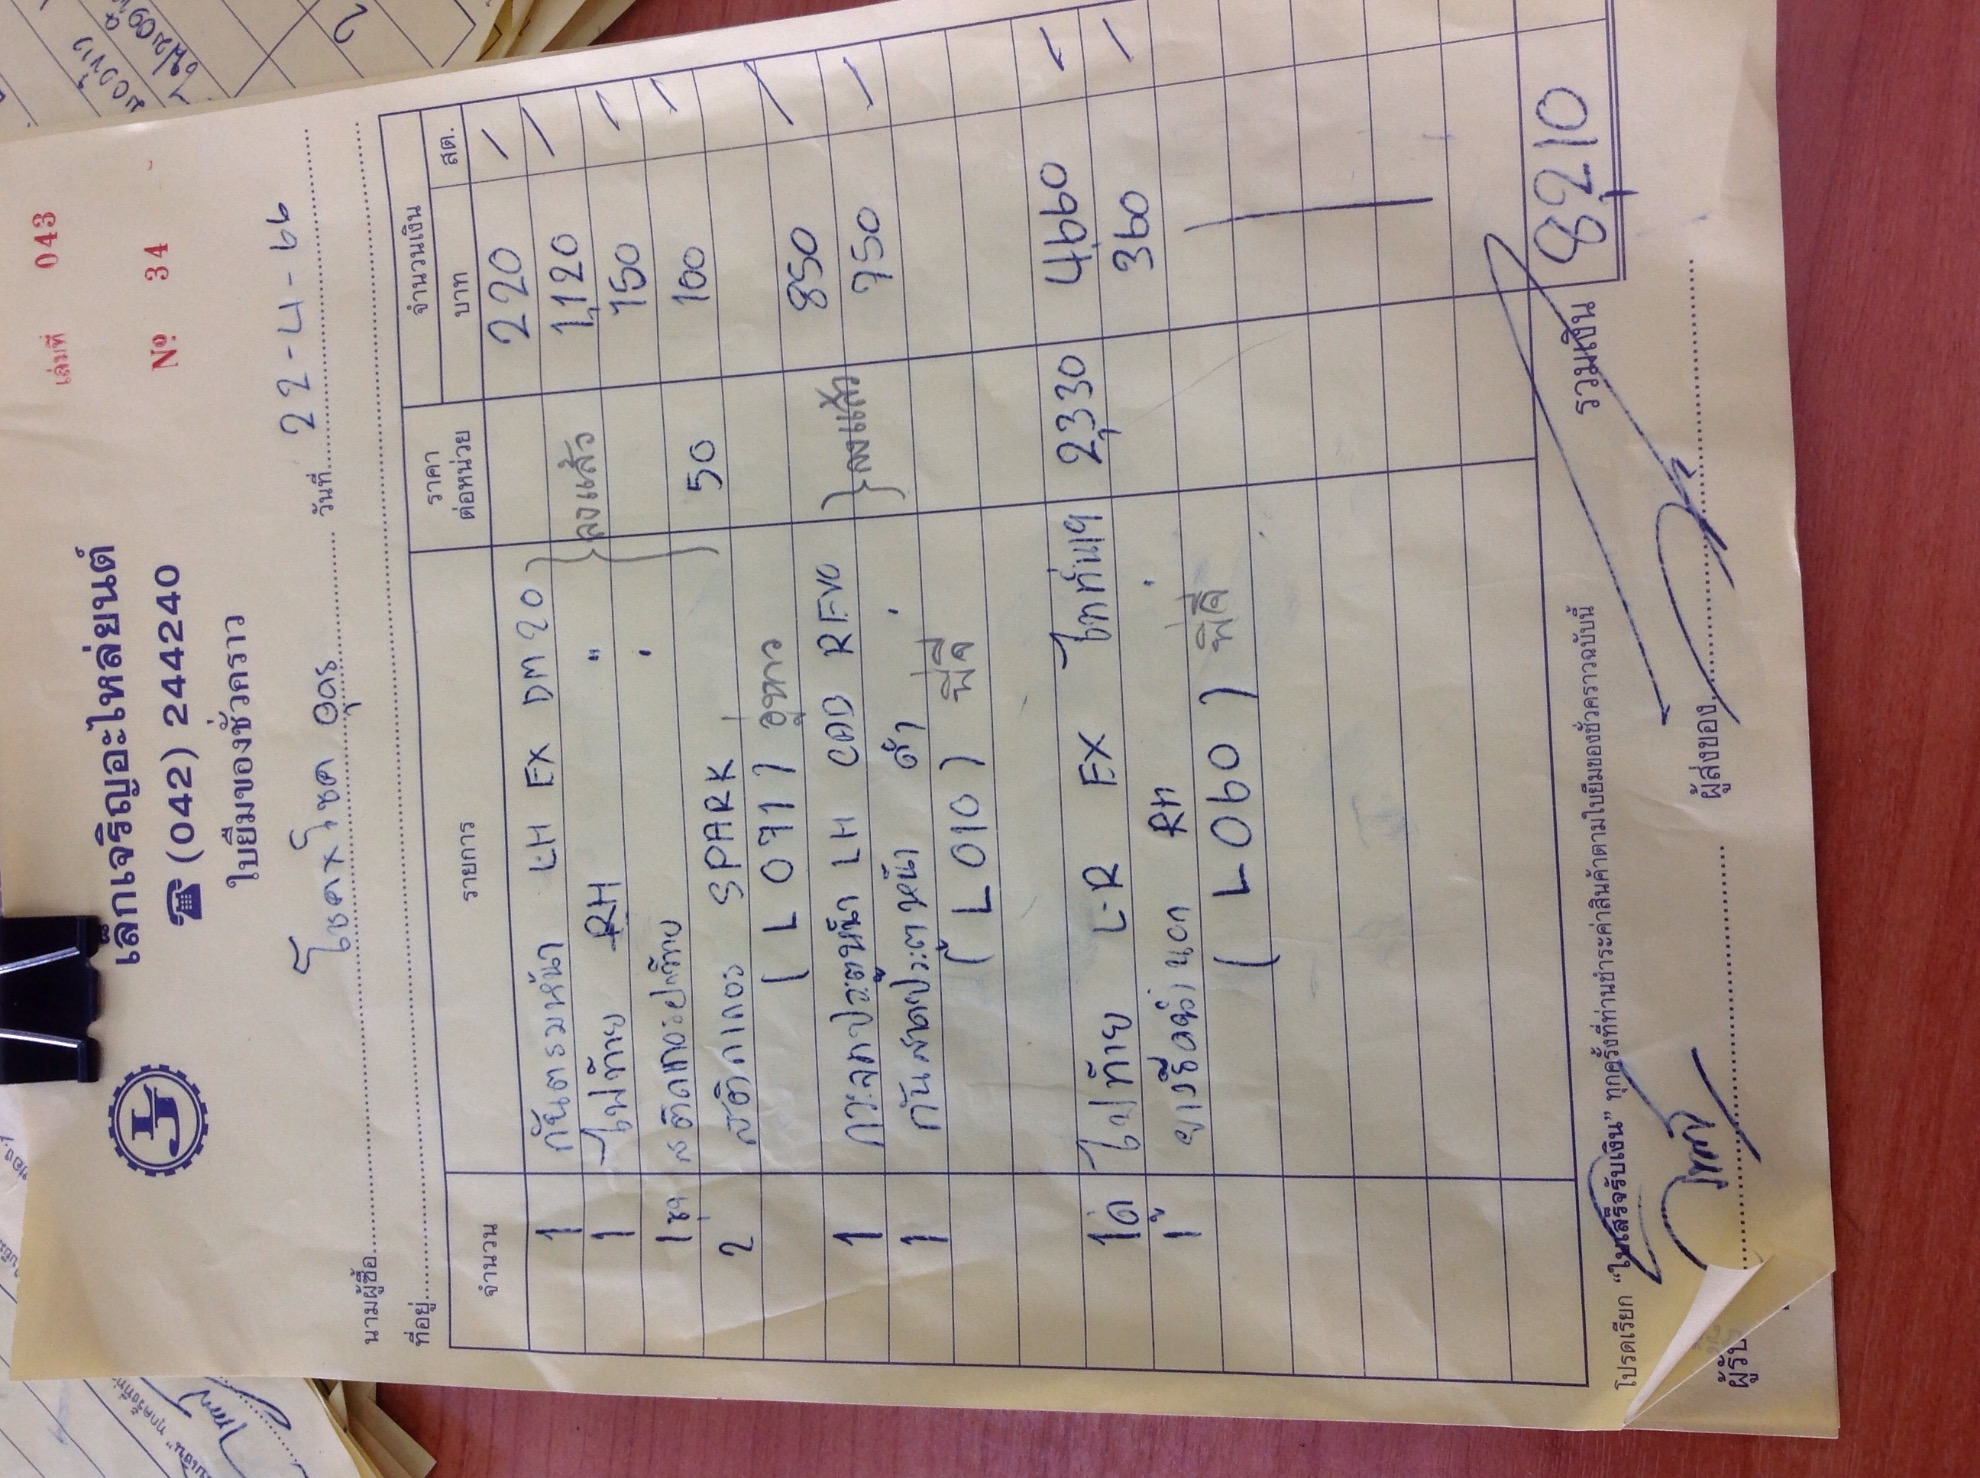 เล่มที่ 043
เล็กเจริญอะไหล่ยนต์
☎ (042) 244240
Nº 34
ใบยืมของชั่วคราว
นามผู้ซื้อ โชคxโชค อุดร วันที่ 22-4-66
ที่อยู่
จำนวน รายการ ราคาต่อหน่วย จำนวนเงิน บาท สต.
1 กันตรมหน้า LH EX DM20 220 /
1 ไฟท้าย RH " ลงแล้ว 1,120 /
1 ชุด สติ๊กเกอร์ฝาท้าย 150 /
2 สติ๊กเกอร์ SPARK 50 100 /
(L071)
1 LH CAB REVO 850 /
1 ประตูหน้า ดำ ลงแล้ว 750 /
(L010) พี่สี
1 คู่ ไฟท้าย L-R EX ไททัน 2,330 4,660 /
1 คิ้ว RH 360 /
(L060) พี่สี
รวมเงิน 8,210
โปรดเรียก "ใบเสร็จรับเงิน" ทุกครั้งที่ท่านชำระค่าสินค้าตามใบยืมของชั่วคราวฉบับนี้
ผู้รับ ผู้ส่งของ